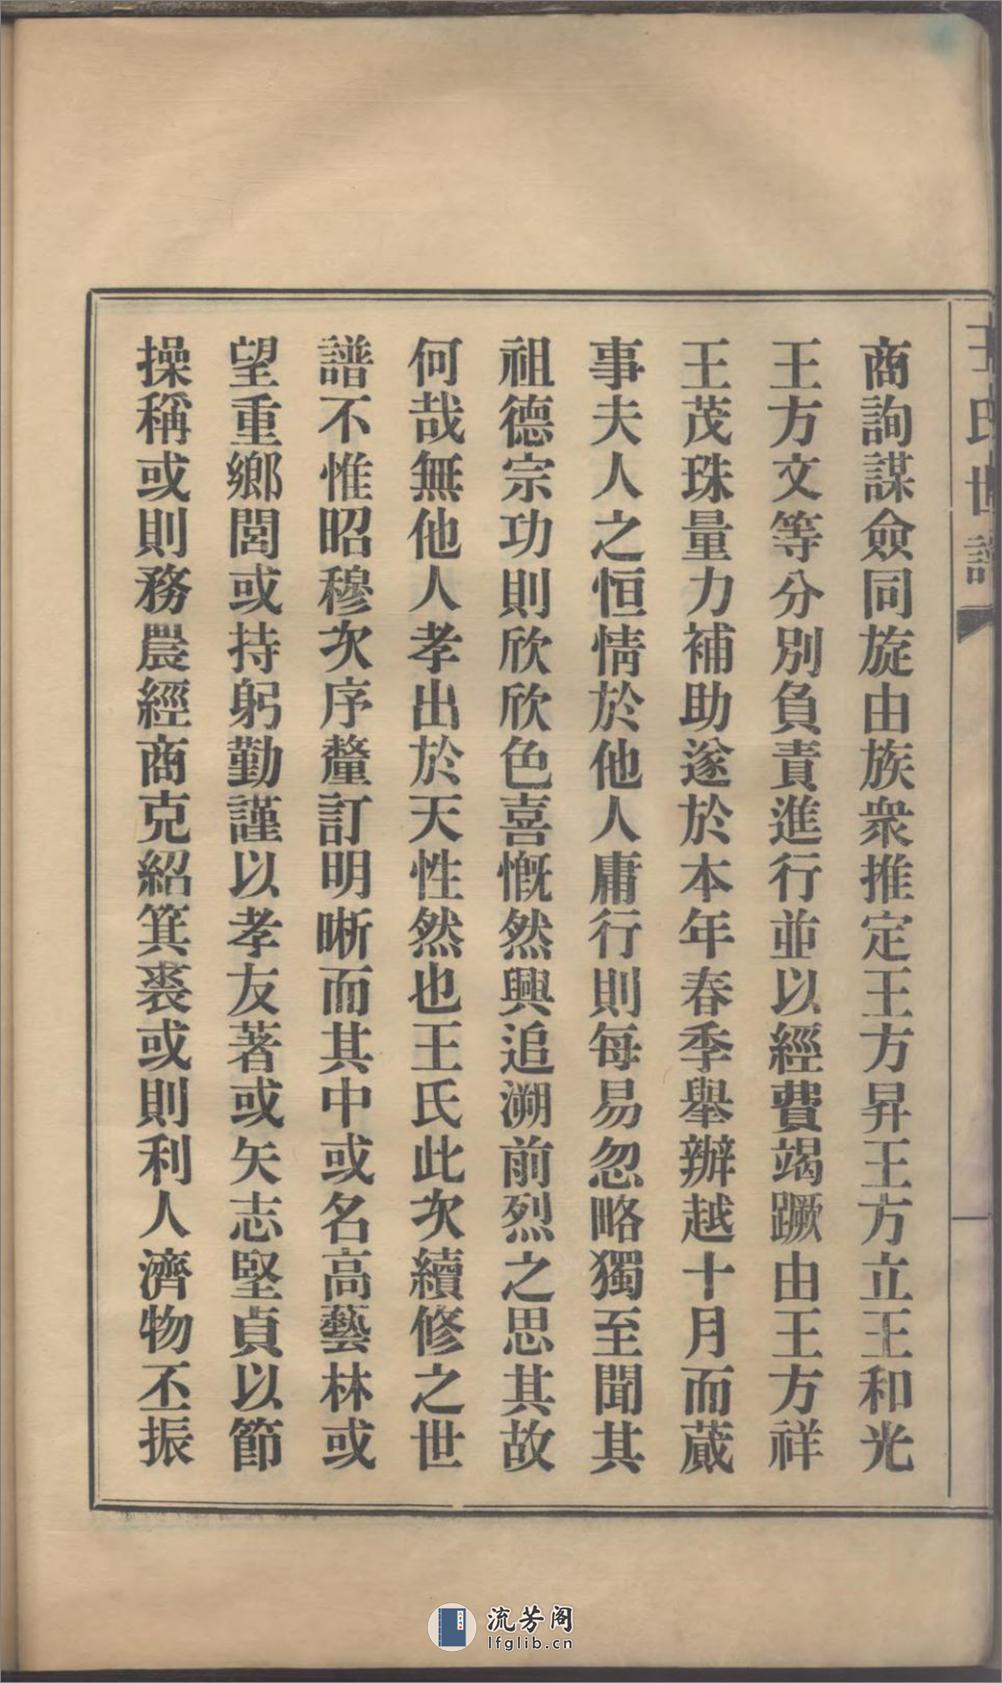 王氏世譜
一
商詢謀僉同旋由族衆推定王方昇王方立王和光
王方文等分別負責進行並以經費竭蹶由王方祥
王茂珠量力補助遂於本年春季舉辦越十月而蕆
事夫人之恒情於他人庸行則每易忽略獨至聞其
祖德宗功則欣欣色喜慨然興追溯前烈之思其故
何哉無他人孝出於天性然也王氏此次續修之世
譜不惟昭穆次序釐訂明晰而其中或名高藝林或
望重鄉閭或持躬勤謹以孝友著或矢志堅貞以節
操稱或則務農經商克紹箕裘或則利人濟物丕振
流芳阁
lfglib.cn